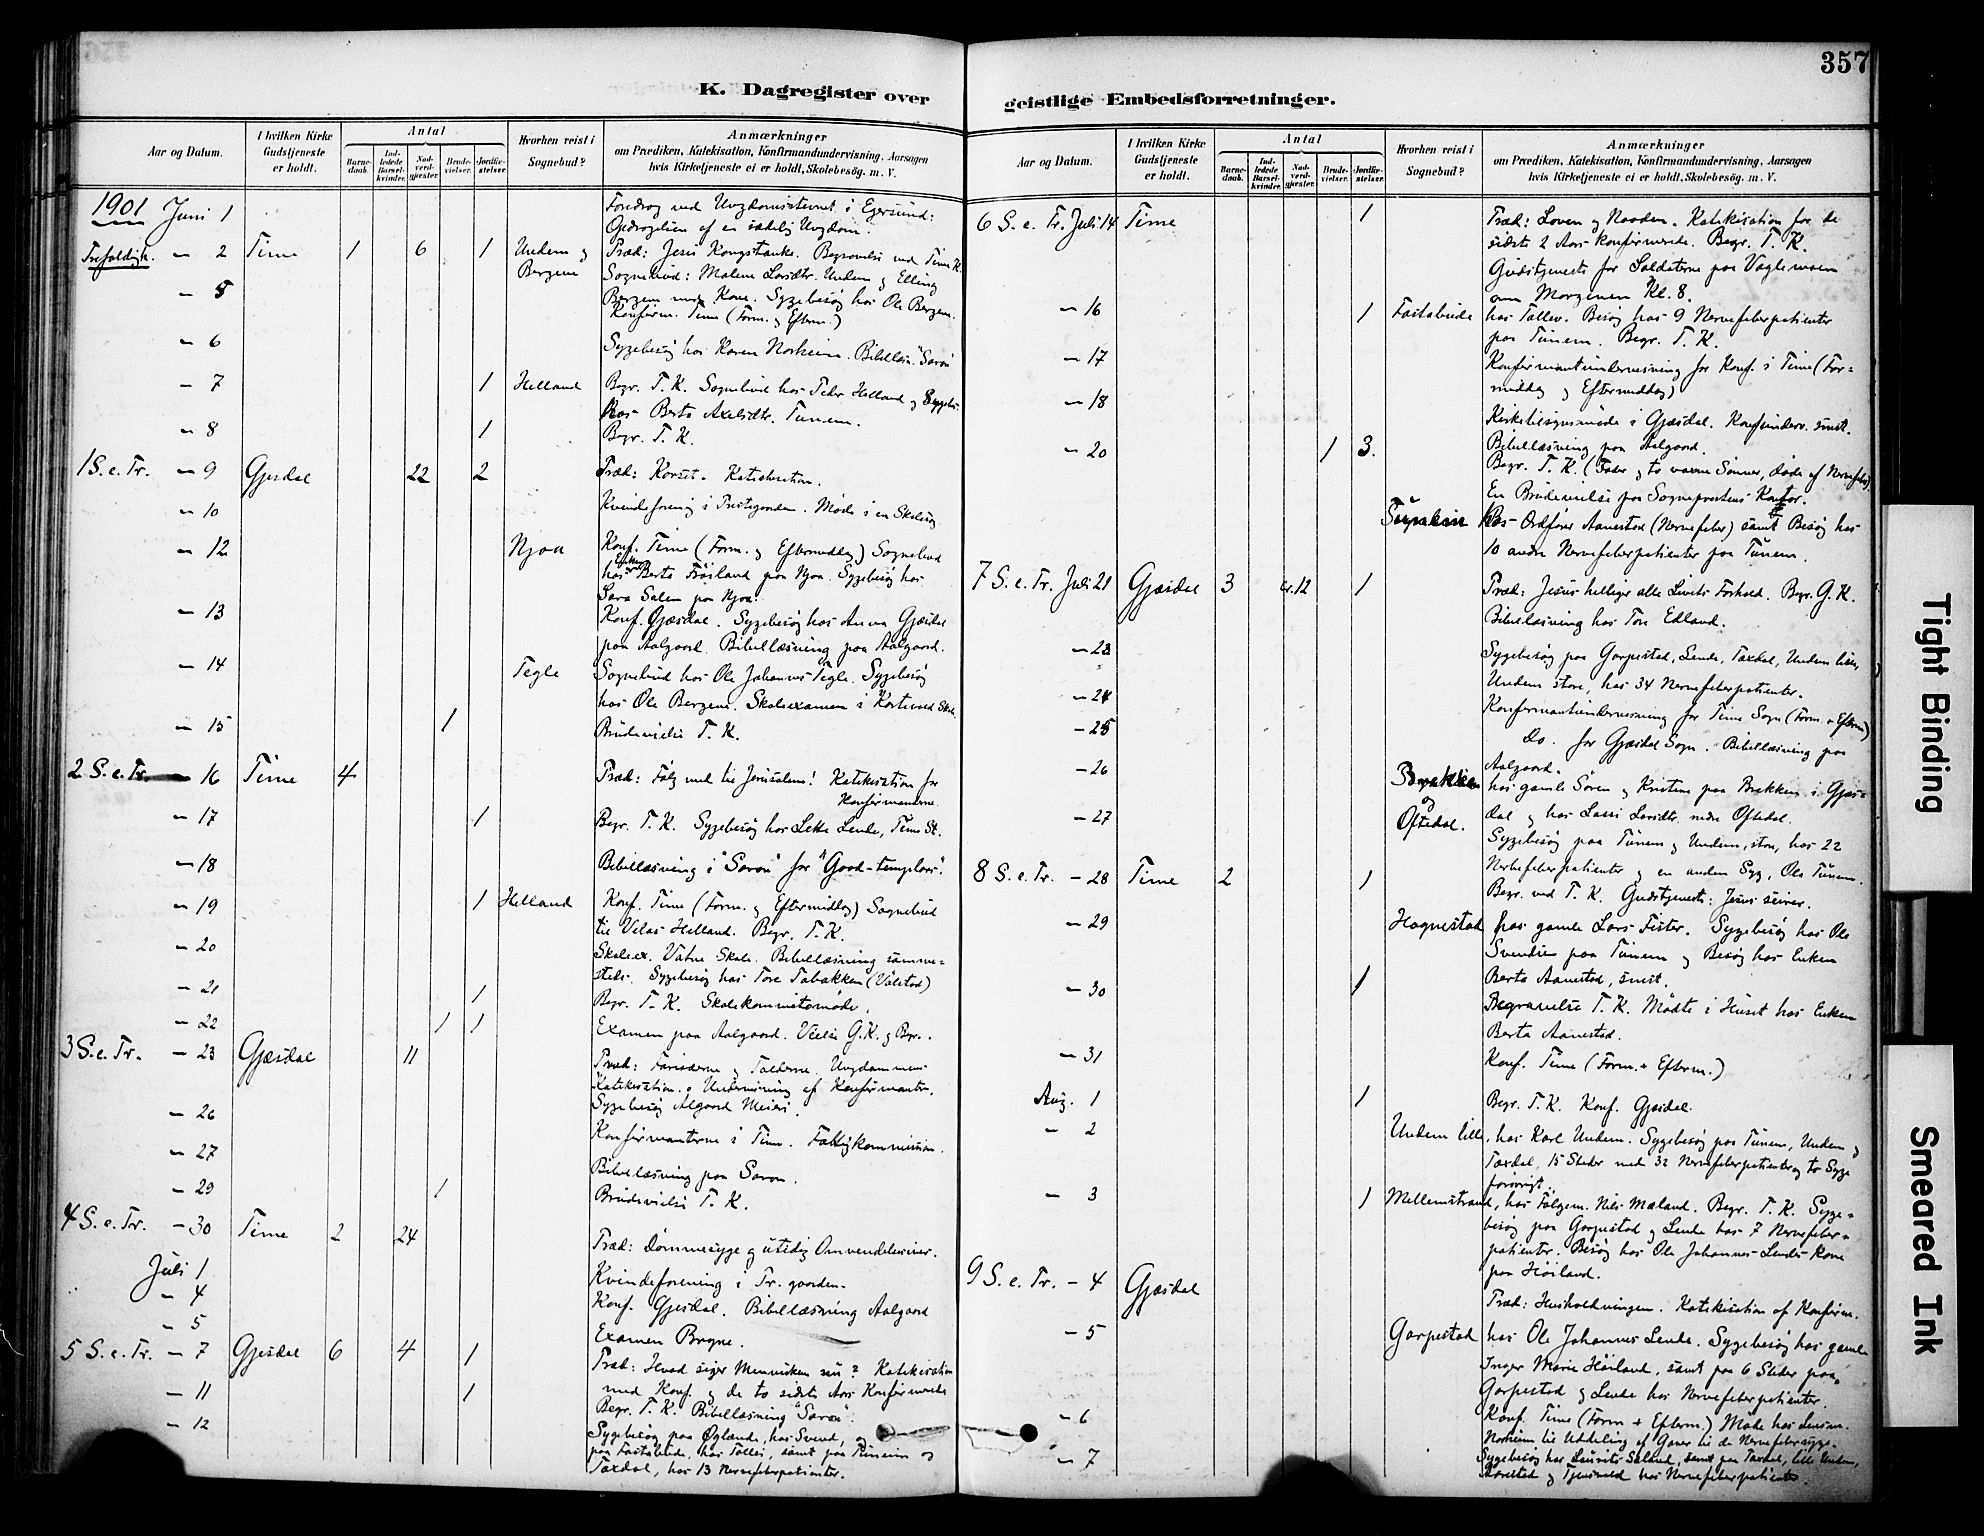 357
K. Dagregister over
geistlige Embedsforretninger.
Aar og Datum.
I hvilken Kirke Gudstjeneste er holdt.
Antal
Barne-daab.
Ind-ledede Barsel-kvinder.
Nad-verd-gjester.
Brude-vielser.
Jordfæ-stelser.
Hvorhen reist i Sognebud?
Anmærkninger
om Prædiken, Katekisation, Konfirmandundervisning, Aarsagen
hvis Kirketjeneste ei er holdt, Skolebesög. m. V.
1901 Juni 1 Foredrag ved Ungdomsstevnet i Egersund:
Opdragelsen af en sædelig Ungdom.
Trefoldigh. — 2 Time 1 6 1 Undem og Præd: Jesu Kongstanke. Begravelse ved Time K.
Bergene Sognebud: Malene Undem og Elling
— 5 Bergene med Kone. Sygebesög hos Ole Bergene.
Konfirm. Time (Form. og Efterm.)
— 6 Sygebesög hos Karen Norheim. "Saron"
— 7 1 Helland Begr. T. K. Sognebud hos Peder Helland og Sygebs.
hos Berta Axelsdtr. Tunem.
— 8 1 Begr. T. K.
1 S. e. Tr. — 9 Gjesdal 22 2 Præd: Korset. Katekisation.
— 10 Kvindeforening i Prestegaarden. Möde i en Skolesag.
— 12 Njaa Konf. Time (Form. og Eftermiddag) Sognebud
hos Berta Fröiland paa Njaa. Sygebesög hos
Sara Salen paa Njaa.
— 13 Konf. Gjæsdal. Sygebesög hos Anna Gjæsdal
paa Aalgaard. Bibellæsning paa Aalgaard.
— 14 Tegle Sognebud hos Ole Johannes Tegle. Sygebesög
hos Ole Bergene. Skoleexamen i Kartevold Skole.
— 15 1 Brudevielse T. K.
2 S. e. Tr. — 16 Time 4 Præd: Fölg med til Jerusalem! Katekisation for
Konfirmanderne.
— 17 1 Begr. T. K. Sygebesög hos Lende, Time St.
— 18 Bibellæsning i "Saron" for "Good-templars".
— 19 1 Helland Konf. Time (Form. og Eftermiddag) Sognebud
til Velas Helland. Begr. T. K.
— 20 Skoleex. Vatne Skole. Bibellæsning samme-
steds. Sygebesög hos Tore Tabakken (Vålstad)
— 21 1 Begr. T. K. Skolekommitemöde.
— 22 1 1 Examen paa Aalgaard. Vielse G. K. og Begr.
3 S. e. Tr. — 23 Gjæsdal 11 Præd: Farisæerne og Tolderne. Ungdommens
Katekisation. Undervisning af Konfirmanter.
Sygebesög Algaard
— 26 Konfirmanterne i Time. Fattigkommission.
— 27 Bibellæsning paa Saron.
— 29 1 Brudevielse T. K.
4 S. e. Tr. — 30 Time 2 24 Præd: Dömmesyge og utidig Omvendelsesiver.
Juli 1 Kvindeforening i Pr. gaarden.
— 4 Konf. Gjesdal. Bibellæsning Aalgaard
— 5 Examen Bryne.
5 S. e. Tr. — 7 Gjesdal 6 4 1 Præd: Hvad siger Mennesken nu? Katekisation
med Konf. og de to sidste Aars Konfirmerede
— 11 1 Begr. T. K. Bibellæsning "Saron".
— 12 Sygebesög paa Öglænde, hos Svend, og
paa Fastabude, hos Tollei, samt paa Tunem og
Taxdal, hos 13 Nervefeberpatienter.
Aar og Datum.
I hvilken Kirke Gudstjeneste er holdt.
Antal
Barne-daab.
Ind-ledede Barsel-kvinder.
Nad-verd-gjester.
Brude-vielser.
Jordfæ-stelser.
Hvorhen reist i Sognebud?
Anmærkninger
om Prædiken, Katekisation, Konfirmandundervisning, Aarsagen
hvis Kirketjeneste ei er holdt, Skolebesög. m. V.
6 S. e. Tr. Juli 14 Time 1 Præd: Loven og Naaden. Katekisation for de
sidste 2 Aars konfirmerede. Begr. T. K.
Gudstjeneste for Soldaterne paa Vaglemoen
om Morgenen Kl. 8.
— 16 1 Fastabude hos Tollev. Besög hos 9 Nervefeberpatienter
paa Tunem. Begr. T. K.
— 17 Konfirmantundervisning for Konf. i Time (For-
middag og Eftermiddag)
— 18 Kirketilsynsmöde i Gjæsdal. Konfunderv. smst.
Bibellæsning paa Aalgaard.
— 20 1 3. Begr. T. K. (Fader og to voxne Sönner, döde af Nervefeber).
En Brudevielse paa Sogneprestens Kontor.
hos Ordförer Aanestad (Nervefeber) samt Besög hos
10 andre Nervefeberpatienter paa Tunem.
7 S. e. Tr. Juli 21 Gjæsdal 3 12 1 Præd: Jesus helliger alle Livets Forhold. Begr. G. K.
Bibellæsning hos Tore Edland.
— 23 Sygebesög paa Garpestad, Lende, Taxdal, Undem lille,
Undem store, hos 34 Nervefeberpatienter.
— 24 Konfirmantundervisning for Time Sogn (Form. + Efterm)
— 25 Do. for Gjæsdal Sogn. Bibellæsning paa
Aalgaard.
— 26 Brekken hos gamle Sören og Kristine paa Brekken i Gjæs-
— 27 og Oftedal. dal og hos Lassi nedre Oftedal.
Sygebesög paa Tunem og Undem, store, hos 22
Nervefeberpatienter og en anden Syg, Ole Tunem.
8 S. e. Tr. — 28 Time 2 1 Begr. ved T. K. Gudstjeneste: Jesus seirer.
— 29 Hognestad hos gamle Lars Fister. Sygebesög hos Ole
Svendsen paa Tunem og Besög hos Enken
Berta Aanestad, smst.
— 30 1 Begravelse T. K. Mödte i Huset hos Enken
Berta Aanestad.
— 31 Konf. Time (Form. + Efterm.)
Aug. 1 1 Begr. T. K. Konf. Gjæsdal.
— 2 Undem lille, hos Karl Undem. Sygebesög paa Tunem, Undem og
Taxdal, 15 Steder med 32 Nervefeberpatienter og to Syge
forövrigt.
— 3 1 Mellemstrand, hos Fölgem. Nils Mæland. Begr. T. K. Syge-
besög paa Garpestad og Lende hos 7 Nervefeber-
patienter. Besög hos Ole Johannes Lendes Kone
paa Höiland.
9 S. e. Tr. — 4 Gjæsdal Præd: Husholdningen. Katekisation af Konfirm.
— 5 Garpestad hos Ole Johannes Lende. Sygebesög hos gamle
Inger Marie Höiland, samt paa 6 Steder paa
Garpestad og Lende hos Nervefeberpatienter.
— 6 Konf. Time (Form + Efterm) Möde hos Lensm.
Norheim til Uddeling af Gaver til de Nervefebersyge.
— 7 Sygebesög hos Laurits Saland, samt paa Taxdal, lille Undem,
Aarestad og hos Nervefeberpatienter.
Tight Binding
Smeared Ink